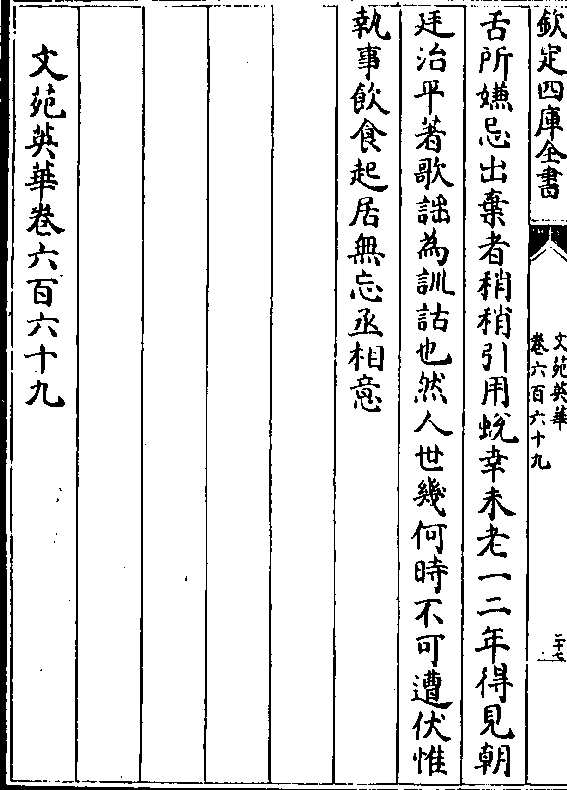 欽定四庫全書
文苑英華
卷六百六十九
二十七
舌所嫌忌出棄者稍稍引用蛻幸未老一二年得見朝
廷治平著歌詘為訓詁也然人世幾何時不可遭伏惟
執事飲食起居無忘丞相意
文苑英華卷六百六十九